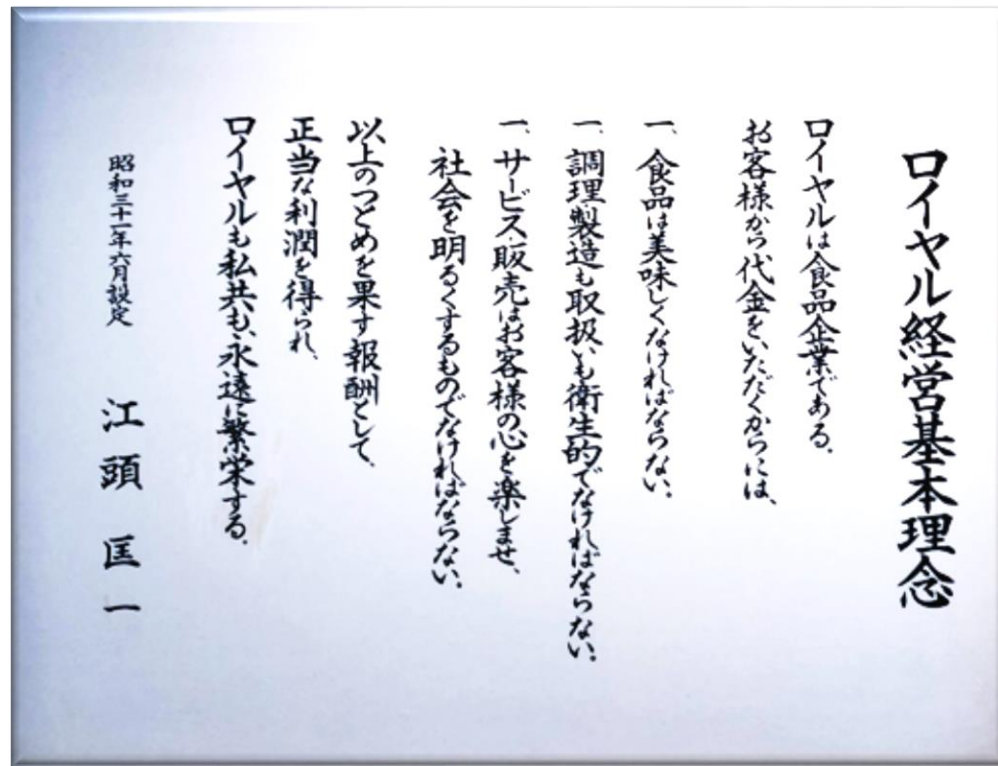 ロイヤル経営基本理念
ロイヤルは食品企業である。
お客様から代金をいただくからには、
一、食品は美味しくなければならない。
一、調理・製造も取扱いも衛生的でなければならない。
一、サービス・販売はお客様の心を楽しませ、
社会を明るくするものでなければならない。
以上のつとめを果す報酬として、
正当な利潤を得られ、
ロイヤルも私共も、永遠に繁栄する。
昭和三十一年六月設定
江頭匡一